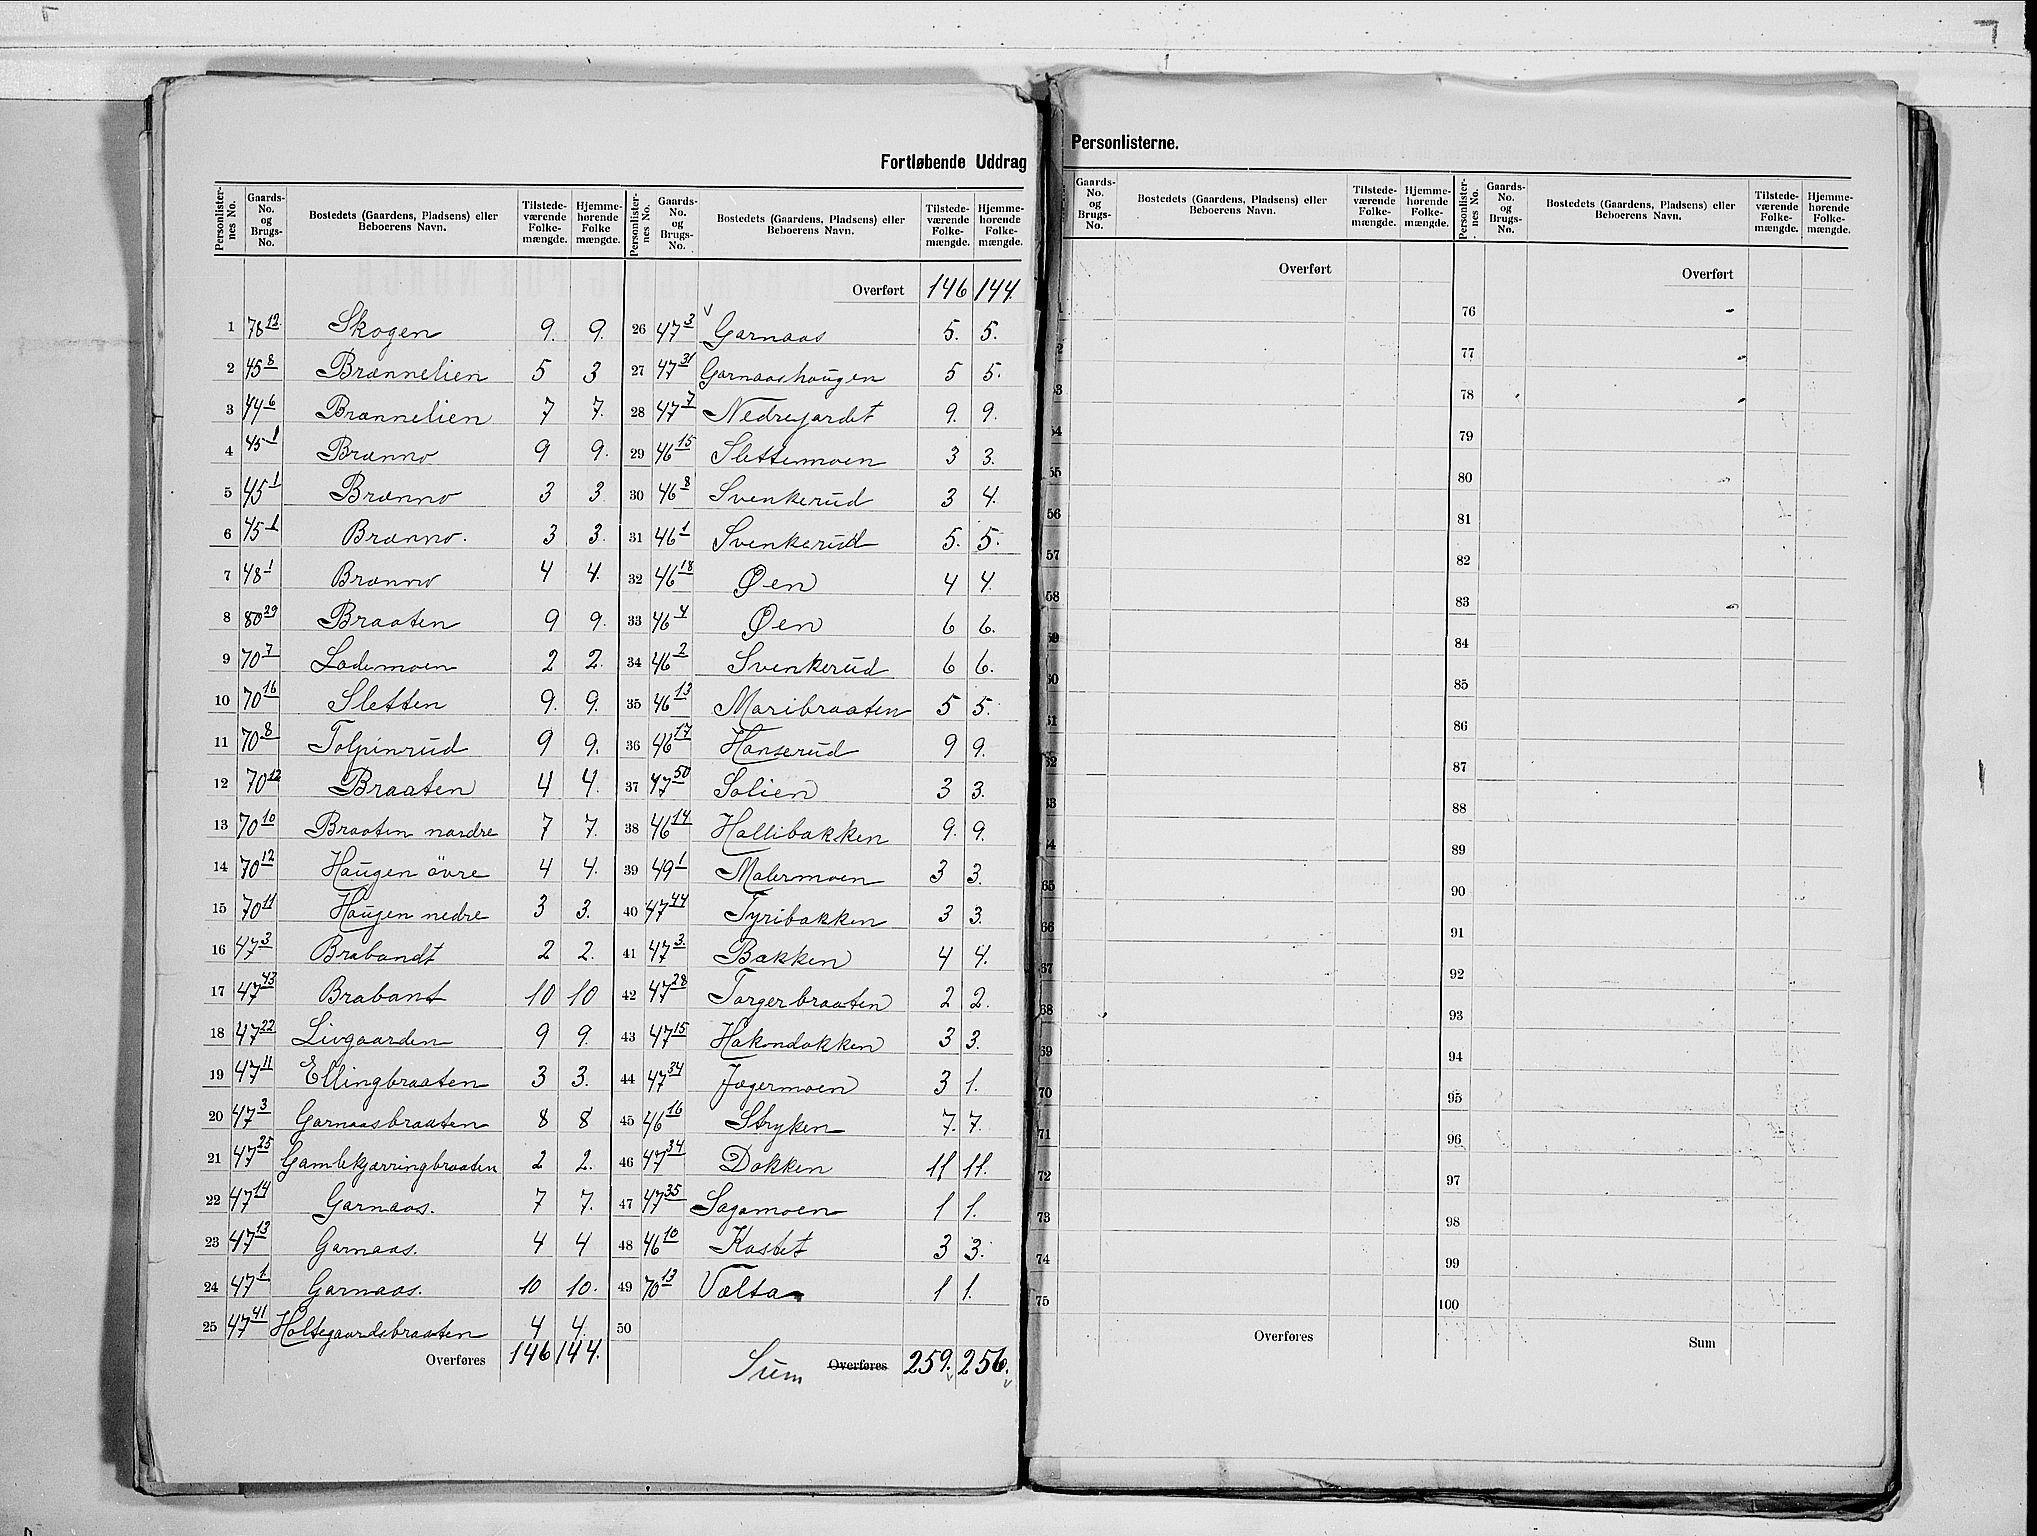 Fortløbende Uddrag
Personlister-nes No.
Gaards-No. og Brugs-No.
Bostedets (Gaardens, Pladsens) eller Beboerens Navn.
Tilstede-værende Folke-mængde.
Hjemme-hørende Folke mængde.
1 78 12 Skogen 9. 9.
2 45 8 Brænnelien 5 3
3 44 6 Brænnelien 7 7.
4 45 1 Brænno 9 9.
5 45 1 Brænno 3 3
6 45 1 Brænno. 3 3.
7 48 1 Brænno 4 4.
8 80 29 Braaten 9 9.
9 70 7 Lademoen 2 2.
10 70 16 Sletten 9. 9.
11 70 8 Tolpinrud 9 9.
12 70 12 Braaten 4 4.
13 70 10 Braaten nordre 7 7.
14 70 12 Haugen övre 4 4.
15 70 11 Haugen nedre 3 3.
16 47 3 Brabandt 2 2.
17 47 43 Brabant 10 10
18 47 22 Livgaarden 9 9.
19 47 11 Ellingbraaten 3 3.
20 47 3 Garnaasbraaten 8 8
21 47 25 Gamlekjærringbraaten 2 2.
22 47 14 Garnaas. 7 7.
23 47 13 Garnaas. 4 4
24 47 1 Garnaas. 10 10.
25 47 41 Holtegaardsbraaten 4 4.
Overføres 146 144.
Personlister-nes No.
Gaards-No. og Brugs-No.
Bostedets (Gaardens, Pladsens) eller Beboerens Navn.
Tilstede-værende Folke-mængde.
Hjemme-hørende Folke-mængde.
Overført 146 144.
26 47 3 Garnaas 5. 5.
27 47 31 Garnaashaugen 5 5.
28 47 7 Nedrejordet 9. 9.
29 46 15 Slettemoen 3 3.
30 46 8 Svenkerud 3 4.
31 46 1 Svenkerud 5. 5.
32 46 18 Øen 4 4.
33 46 4 Øen 6 6.
34 46 2 Svenkerud 6 6.
35 46 13 Maribraaten 5 5.
36 46 17 Hanserud 9 9.
37 47 50 Solien 3 3.
38 46 14 Hallibakken 9. 9.
39 49 1 Malermoen 3 3.
40 47 44 Tyribakken 3 3.
41 47 3. Bakken 4 4.
42 47 28 Torgerbraaten 2 2.
43 47 15 Hakondokken 3 3.
44 47 34 Jægermoen 3 1.
45 46 16 Stryken 7. 7.
46 47 34 Dokken 11 11.
47 47 35 Sagamoen 1 1.
48 46 10 Kastet 3 3.
49 70 13 Vælta 1 1.
50
Sum Overføres 259. 256.
Personlisterne.
Gaards-No. og Brugs-No.
Bostedets (Gaardens, Pladsens) eller Beboerens Navn.
Tilstede-værende Folke-mængde.
Hjemme-hørende Folke-mængde.
Overført
56
57
58
59
65
66
67
68
69
70
71
72
73
74
75
Overføres
Personlister-nes No.
Gaards-No. og Brugs-No.
Bostedets (Gaardens, Pladsens) eller Beboerens Navn.
Tilstede-værende Folke-mængde.
Hjemme-hørende Folke-mængde.
Overført
76
77
78
79
80
81
82
83
84
85
86
87
88
89
90
91
92
93
94
95
96
97
98
99
100
Sum